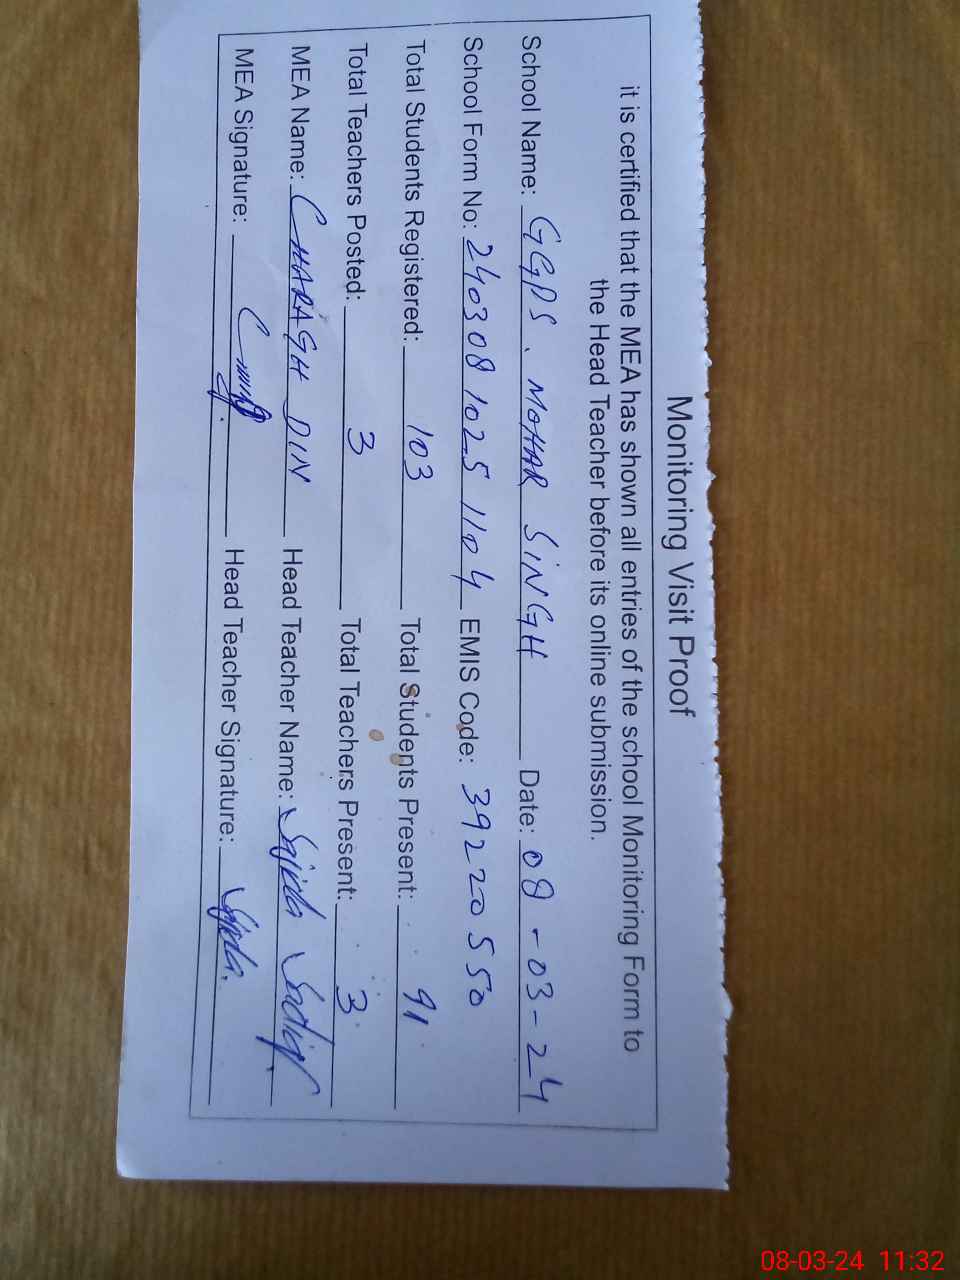 Monitoring Visit Proof
it is certified that the MEA has shown all entries of the school Monitoring Form to
the Head Teacher before its online submission.
School Name: GGPS. MOHAR SINGH Date: 08-03-24
School Form No: 240308 1025 1104 EMIS Code: 39220550
Total Students Registered: 103 Total Students Present: 91
Total Teachers Posted: 3 Total Teachers Present: 3
MEA Name: CHARAGH DIN Head Teacher Name: Sajida Sadiq
MEA Signature: Head Teacher Signature: Sajida.
08-03-24 11:32